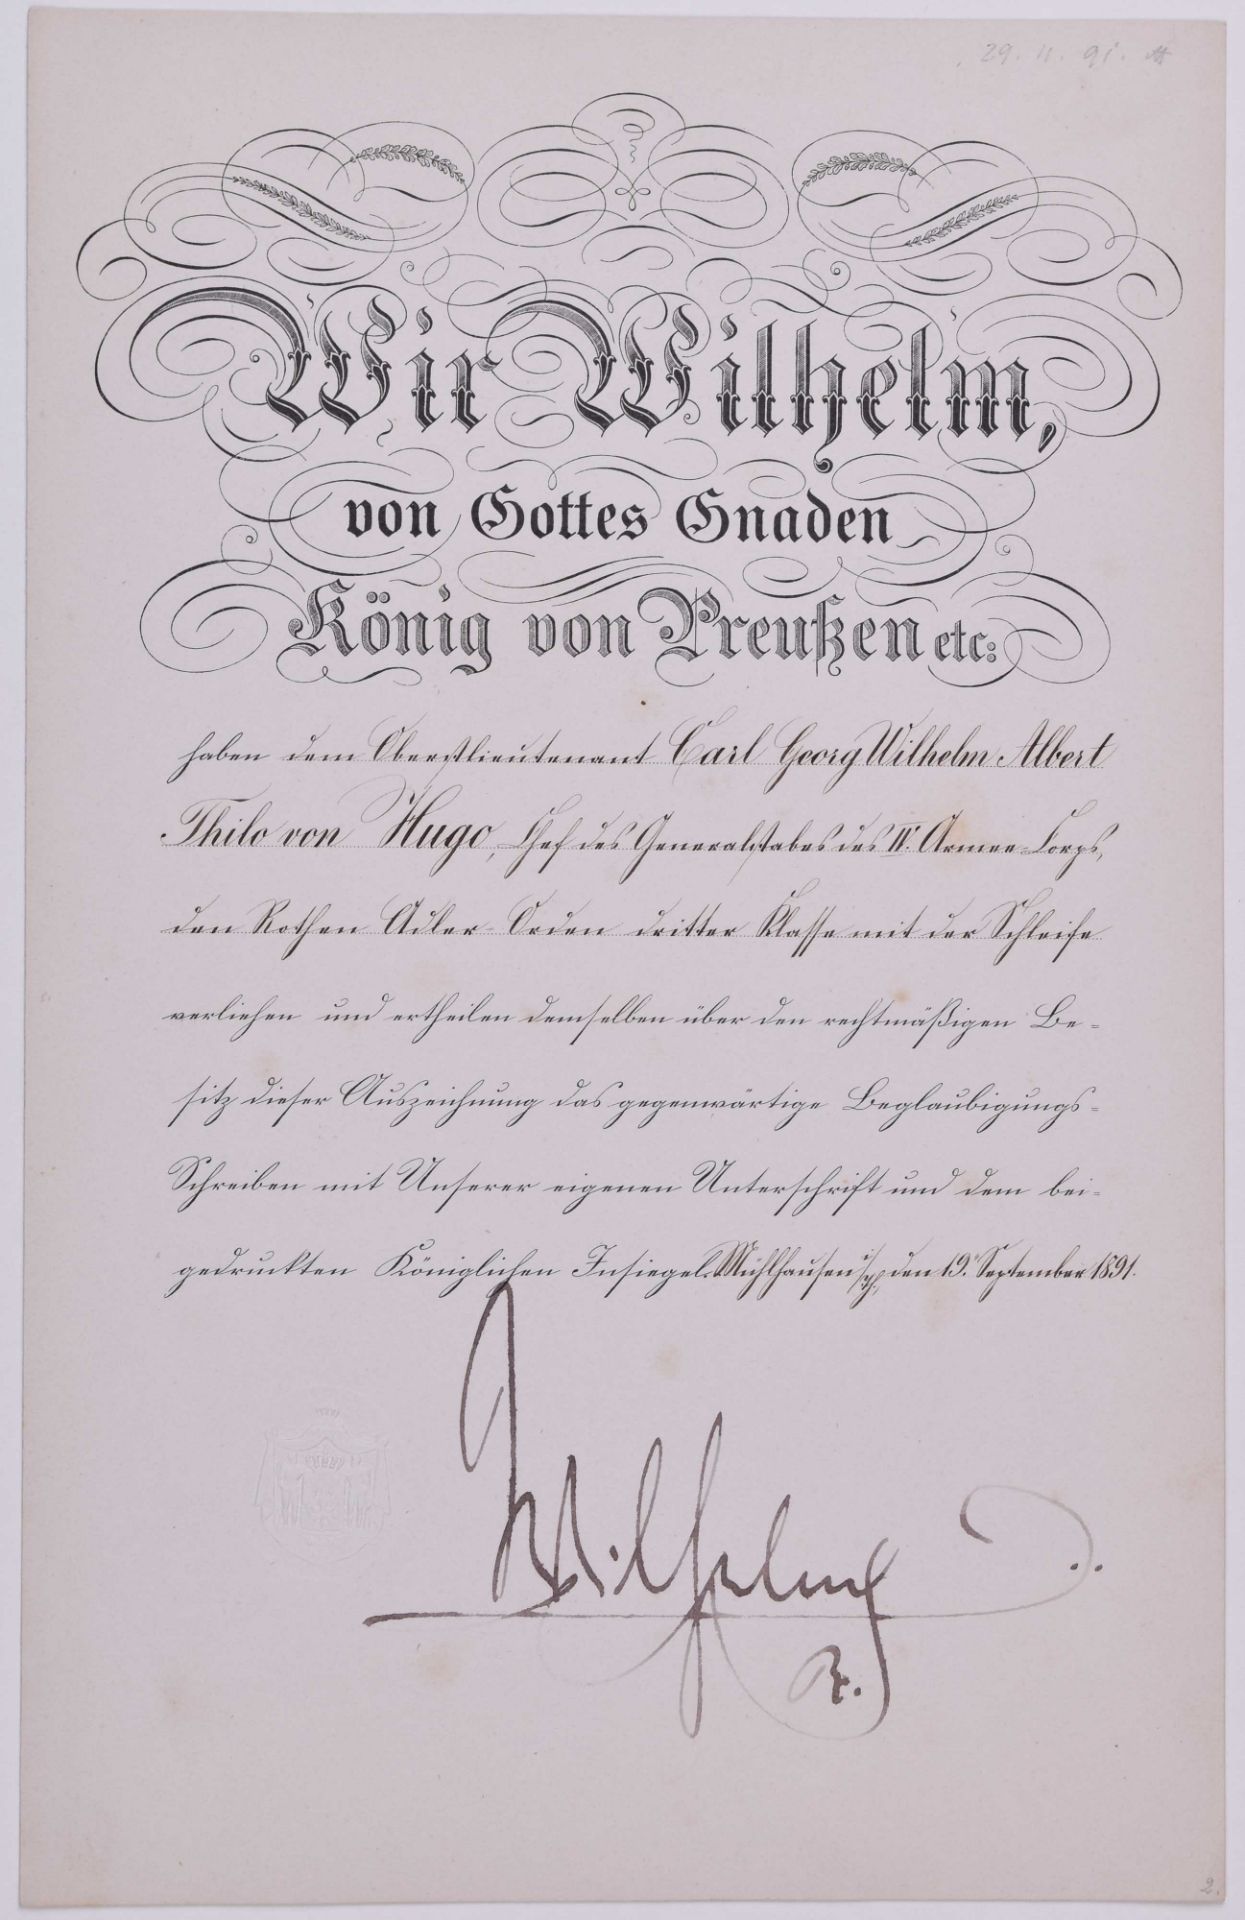 29. 11. 91.
Wir Wilhelm,
von Gottes Gnaden
König von Preußen etc:
haben dem Oberstlieutenant Carl Georg Wilhelm Albert
Thilo von Hugo, Chef des Generalstabes des IV. Armee-Corps,
den Rothen Adler-Orden dritter Klasse mit der Schleife
verliehen und ertheilen demselben über den rechtmäßigen Be-
sitz dieser Auszeichnung das gegenwärtige Beglaubigungs-
Schreiben mit Unserer eigenen Unterschrift und dem bei-
gedruckten Königlichen Insiegel. Mühlhausen i/Th, den 19. September 1891.
Wilhelm
R.
2.